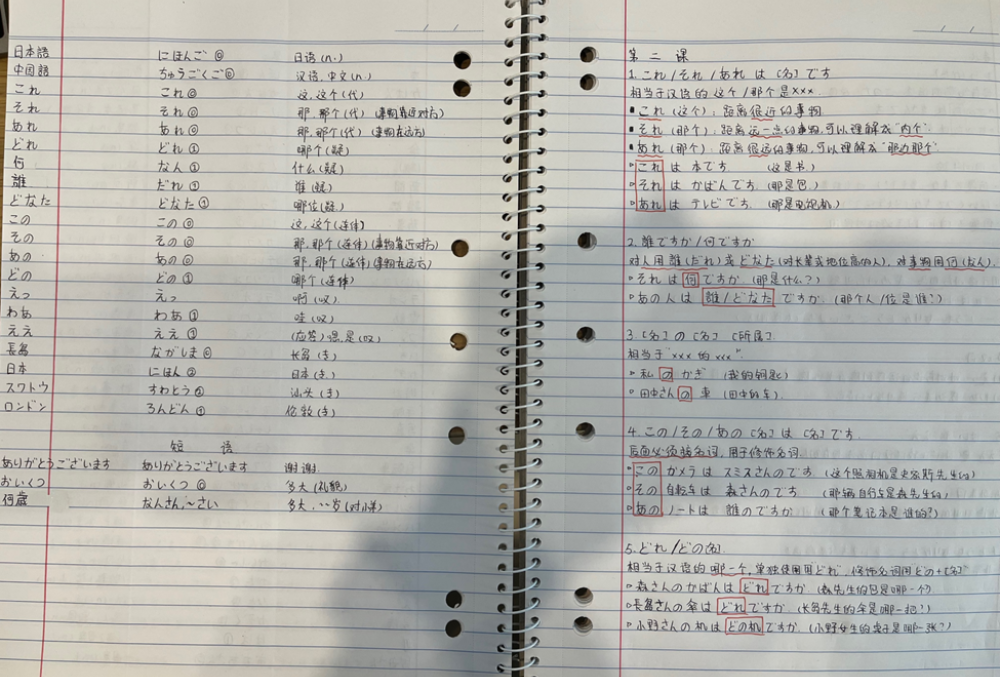 日本語 にほんご⓪ 日语(n.)
中国語 ちゅうごくご⓪ 汉语,中文(n.)
これ これ⓪ 这,这个(代)
それ それ⓪ 那,那个(代)(事物靠近对方)
あれ あれ⓪ 那,那个(代)(事物在远方)
どれ どれ① 哪个(疑)
何 なん① 什么(疑)
誰 だれ① 谁(疑)
どなた どなた① 哪位(疑)
この この⓪ 这,这个(连体)
その その⓪ 那,那个(连体)(事物靠近对方)
あの あの⓪ 那,那个(连体)(事物在远方)
どの どの① 哪个(连体)
えっ えっ 啊(叹)
わあ わあ① 哇(叹)
ええ ええ① (应答)嗯,是(叹)
長島 ながしま⓪ 长岛(专)
日本 にほん② 日本(专)
スワトウ すわとう 汕头(专)
ロンドン ろんどん① 伦敦(专)
短语
ありがとうございます ありがとうございます 谢谢.
おいくつ おいくつ⓪ 多大(礼貌)
何歳 なんさい,~さい 多大,··岁(对小辈)
第二课
1. これ/それ/あれ は [名] です
相当于汉语的 这个/那个是×××
▪これ(这个):距离很近的事物
▪それ(那个):距离远一点的事物,可以理解成"内个".
▪あれ(那个):距离很远的事物,可以理解成"那边那个".
▫これは 本です (这是书.)
▫それは かばんです.(那是包.)
▫あれは テレビです.(那是电视机)
2. 誰ですか/何ですか
对人用誰(だれ)或どなた(对长辈或地位高的人),对事物用何(なん).
▫それ は 何 ですか (那是什么?)
▫あの人 は 誰/どなた ですか.(那个人/位是谁?)
3. [名] の [名] [所属]
相当于"××× 的 ×××".
▫私 の かぎ (我的钥匙)
▫田中さん の 車 (田中的车).
4. この/その/あの [名] は [名] です.
后面必须接名词,用于修饰名词.
▫この カメラは スミスさんのです (这个照相机是史密斯先生的)
▫その 自転車は 森さんのです (那辆自行车是森先生的)
▫あの ノートは 誰のですか (那个笔记本是谁的?)
5. どれ/どの[名]
相当于汉语的哪一个,单独使用用どれ",修饰名词用どの+[名]"
▫森さんのかばんは どれ ですか (森先生的包是哪一个?)
▫長島さんの傘は どれ ですか.(长岛先生的伞是哪一把?)
▫小野さんの机は どの机 ですか.(小野女士的桌子是哪一张?)